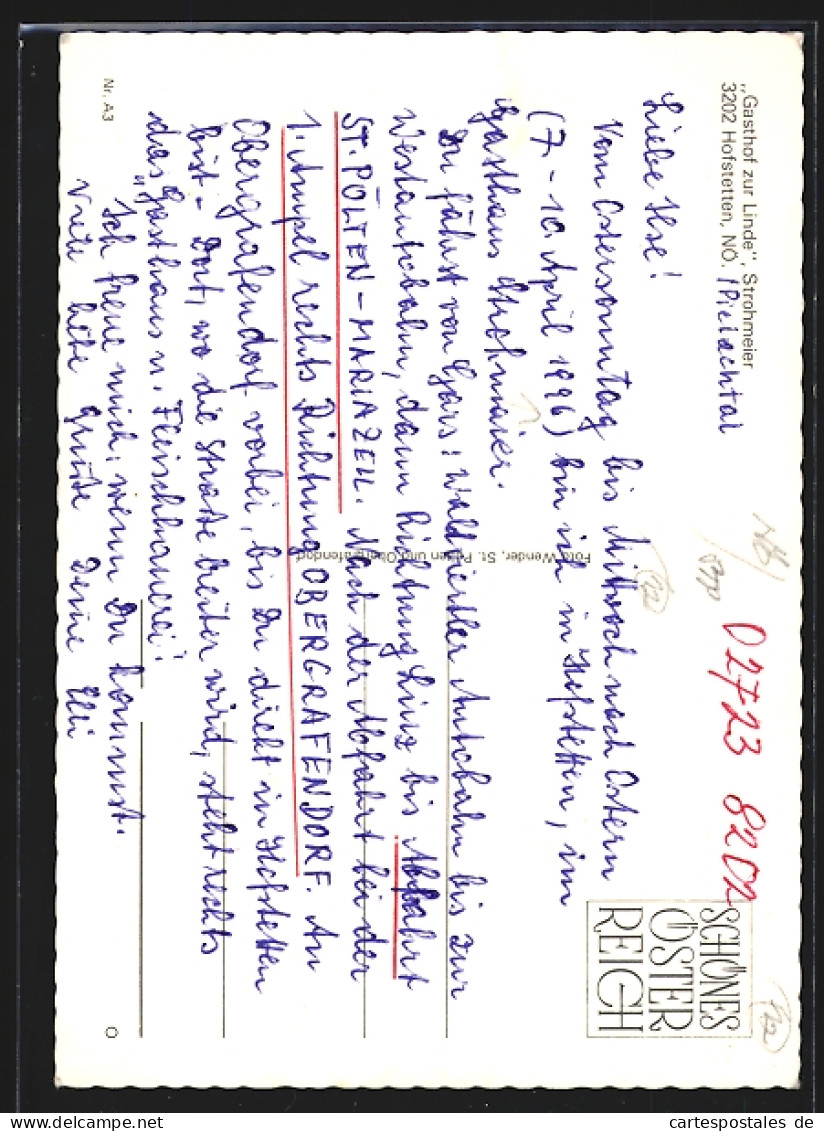 „Gasthof zur Linde“, Strohmeier
3202 Hofstetten, NÖ. /Pielachtal
02723 8202
SCHÖNES
ÖSTER
REICH
Liebe Ilse!
Vom Ostersonntag bis Mittwoch nach Ostern
(7. - 10. April 1996) bin ich in Hofstetten, im
Gasthaus Strohmaier.
Du fährst von Gars: Waldviertler Autobahn bis zur
Westautobahn, dann Richtung Linz bis Abfahrt
ST. PÖLTEN - MARIAZELL. Nach der Abfahrt bei der
1. Ampel rechts Richtung OBERGRAFENDORF. An
Obergrafendorf vorbei, bis Du direkt in Hofstetten
bist - Dort, wo die Straße breiter wird, steht rechts
das „Gasthaus u. Fleischhauerei“!
Ich freue mich, wenn Du kommst.
Viele liebe Grüße Deine Elli
Foto Wender, St. Pölten und Obergrafendorf
Nr. A3
cartespostales de